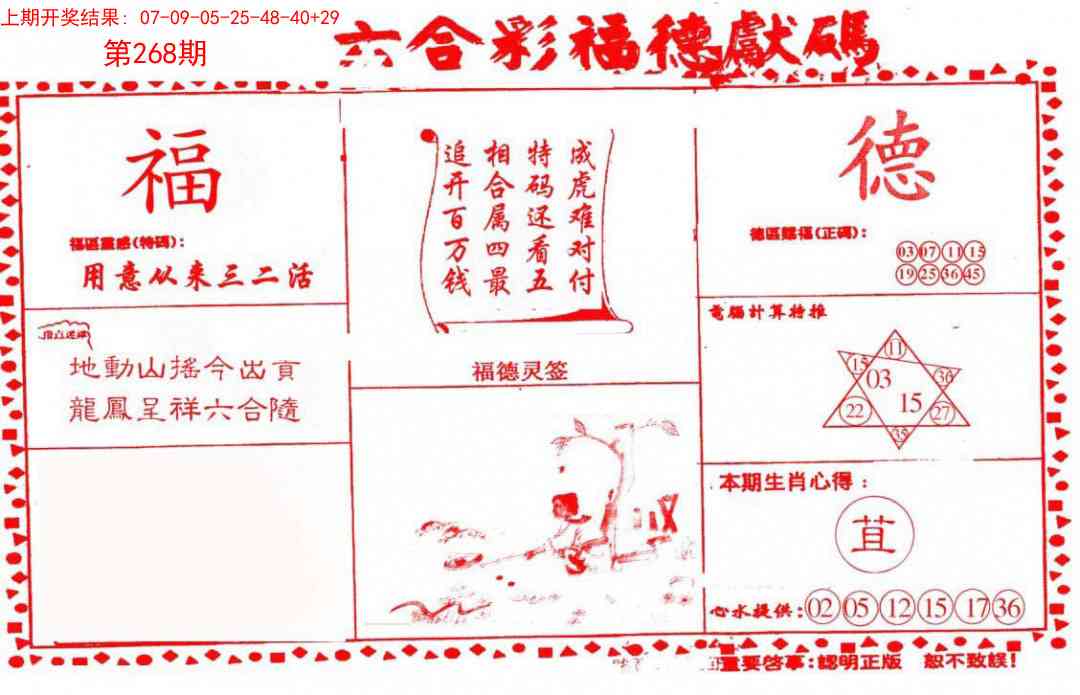 上期开奖结果：07-09-05-25-48-40+29
第268期
六合彩福德獻碼
福
福區靈感(特碼)：
用意从来三二活
地動山搖今出頁
龍鳳呈祥六合隨
成虎难对付
特码还看五
相合属四最
追开百万钱
福德灵签
德
德區賜福(正碼)：
03 07 11 15
19 25 36 45
電腦計算特推
11
15 36
03
15
22 27
35
本期生肖心得：
苴
心水提供：02 05 12 15 17 36
重要啓事：認明正版　恕不致誤！